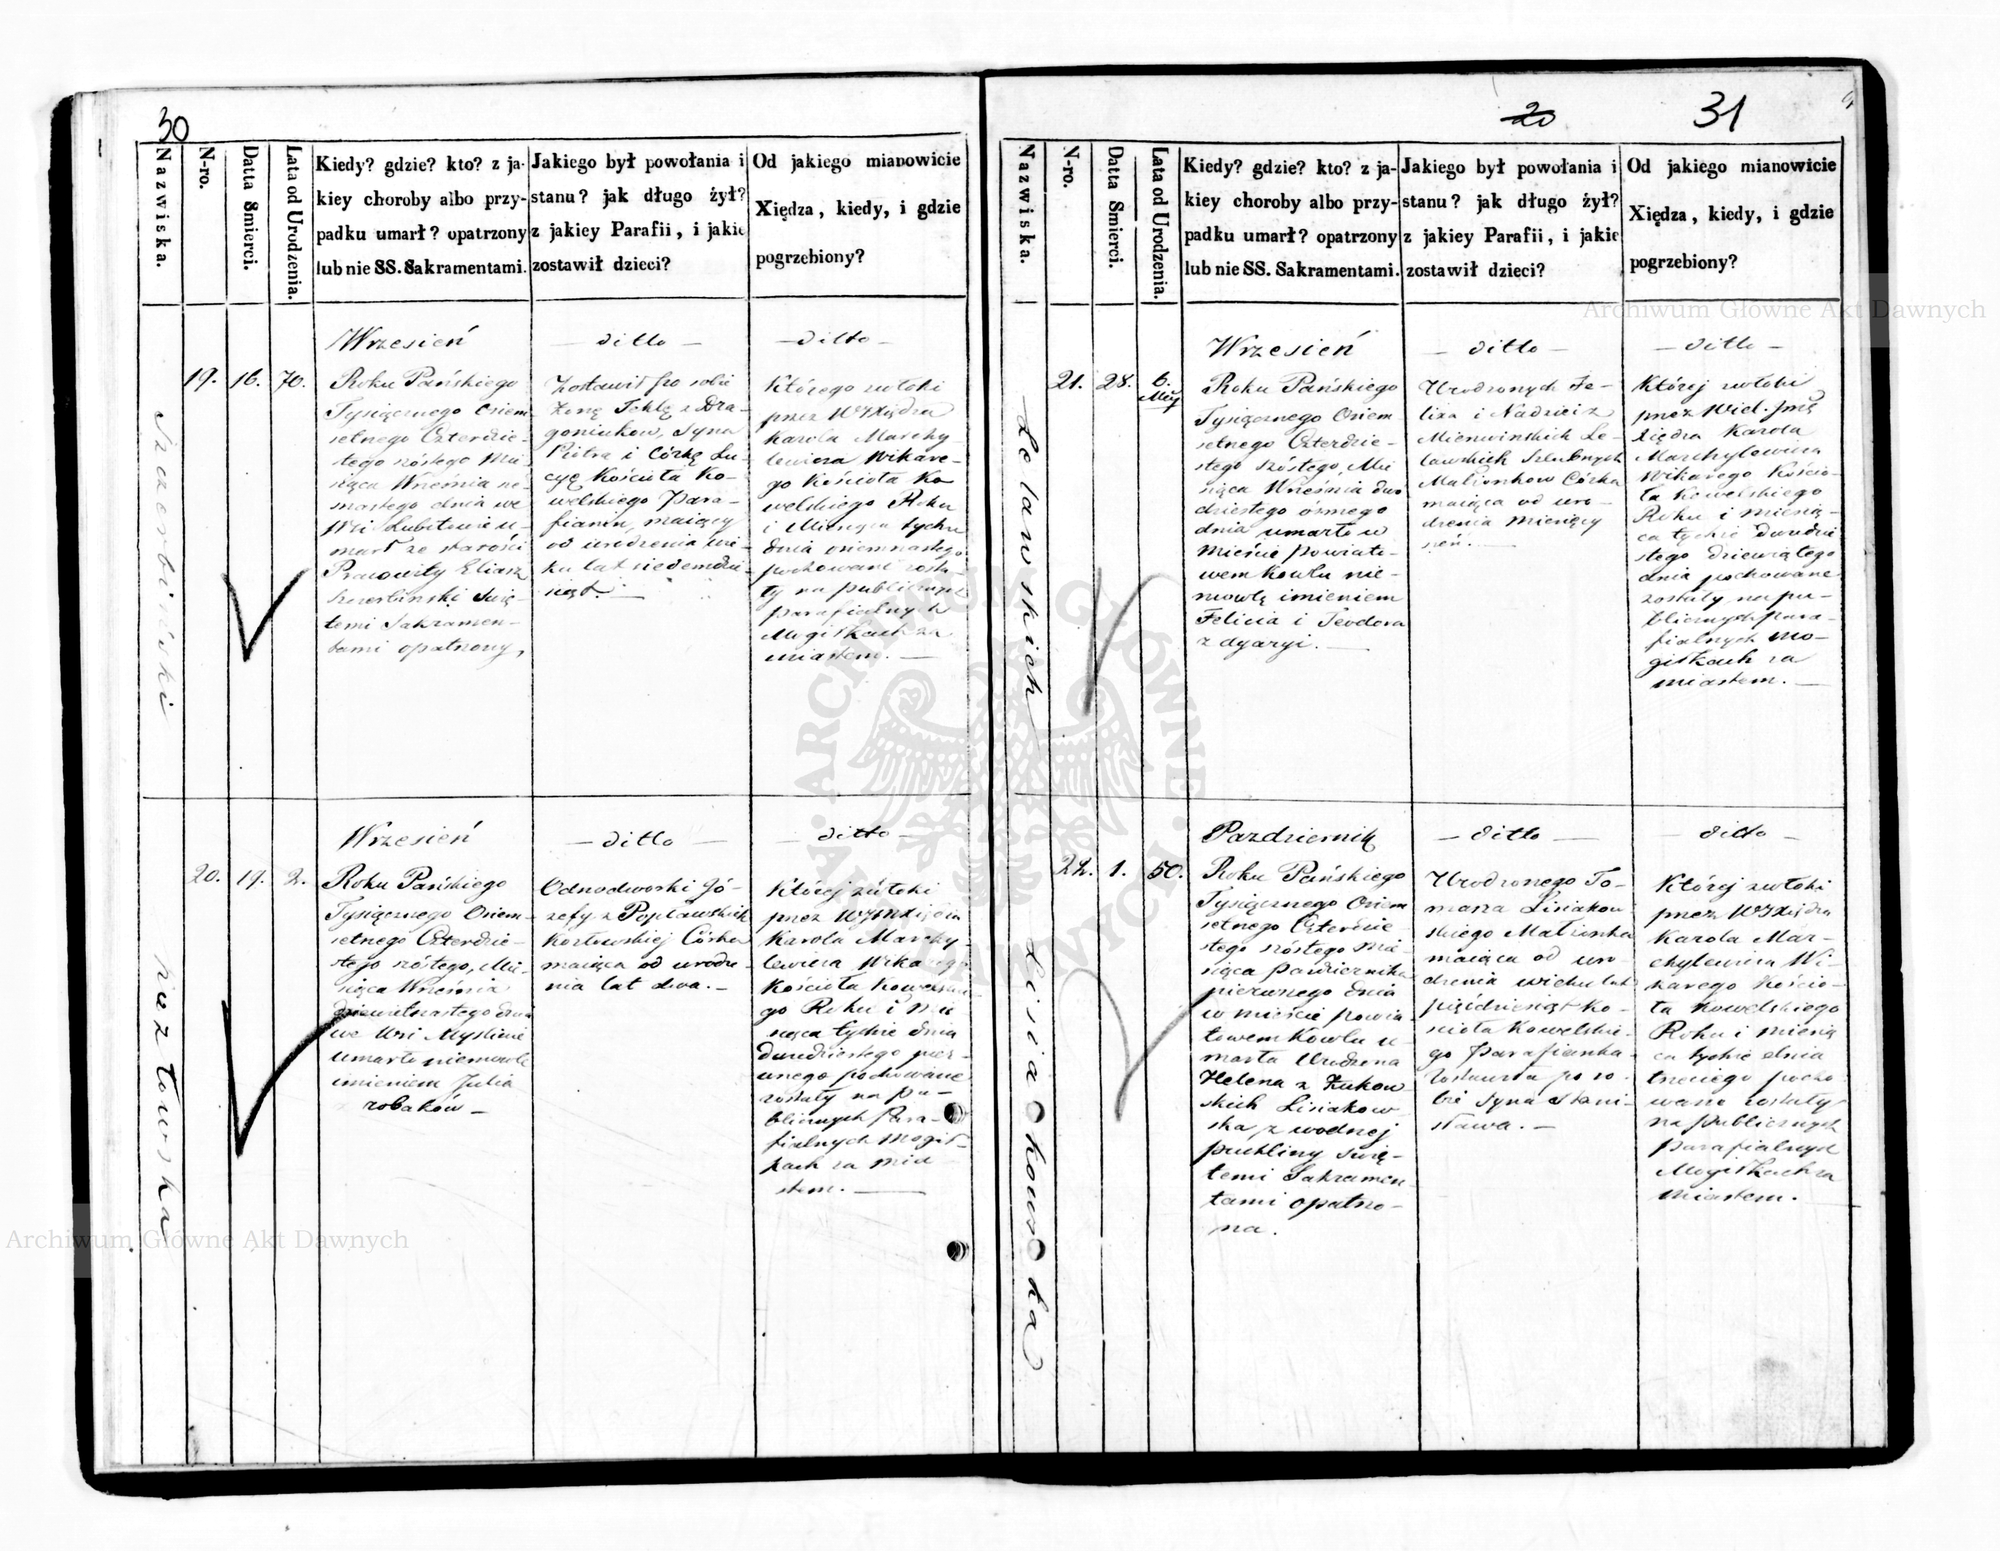 30
Nazwiska.
N-ro.
Datta Smierci.
Lata od Urodzenia.
Kiedy? gdzie? kto? z ja-
kiey choroby albo przy-
padku umarł? opatrzony
lub nie SS. Sakramentami.
Jakiego był powołania i
stanu? jak długo żył?
z jakiey Parafii, i jakie
zostawił dzieci?
Od jakiego mianowicie
Xiędza, kiedy, i gdzie
pogrzebiony?
Szczerbiński
19. 16. 70.
Wrzesień
Roku Pańskiego
Tysiącznego Osiem
setnego Czterdzie-
stego szóstego Mie
siąca Września
snastego dnia we
Wsi Lubitowie u-
marł ze starości
Pracowity Eliasz
Szczerbinski Świę-
temi Sakramen-
tami opatrzony,
— ditto —
Zostawił po sobie
Żonę Teklę z Dra-
goniukow, Syna
Piotra i Córkę Łu-
cyę Kościoła Ko-
welskiego Para-
fianin, maiący
od urodzenia wie-
ku lat siedemdzie-
siąt. —
— ditto —
Którego zwłoki
przez WJXiędza
Karola Marchy-
lewicza Wikare-
go Kościoła Ko
welskiego Roku
i Miesiąca tychże
dnia osiemnastego
pochowane zosta-
ły na publicznych
parafialnych
Mogiłkach za
miastem. —
Kozłowska
20. 19. 2.
Wrzesień
Roku Pańskiego
Tysiącznego Osiem-
setnego Czterdzie-
stego szóstego, Mie-
siąca Września
dziewiętnastego dnia
we Wsi
umarło niemowle
imieniem Julia
z robaków —
— ditto —
Odnodworki Jó-
zefy z Popławskich
Kozłowskiej Córka
maiąca od urodze-
nia lat dwa. —
— ditto —
Której zwłoki
przez WJMXiędza
Karola Marchy-
lewicza Wikarego
Kościoła Kowelskie
go Roku i Mie
siąca tychże dnia
dwudziestego pier-
wszego pochowane
zostały na pu-
blicznych Para-
fialnych Mogił-
kach za mia
stem. —
20
31
Nazwiska.
N-ro.
Datta Smierci.
Lata od Urodzenia.
Kiedy? gdzie? kto? z ja-
kiey choroby albo przy-
padku umarł? opatrzony
lub nie SS. Sakramentami.
Jakiego był powołania i
stanu? jak długo żył?
z jakiey Parafii, i jakie
zostawił dzieci?
Od jakiego mianowicie
Xiędza, kiedy, i gdzie
pogrzebiony?
Lelawskich
21. 28. 6.
Wrzesień
Roku Pańskiego
Tysiącznego Osiem
setnego Czterdzie-
stego szóstego, Mie
siąca Września dwu
dziestego osmego
dnia umarło w
Mieście Powiato-
wem Kowlu nie-
mowlę imieniem
Felicia i Teodora
z dyaryi. —
— ditto —
Urodzonych Fe-
lixa i Nadziei z
Lelawskich Szlubnych
Małżonkow Córka
maiąca od uro-
dzenia miesięcy
sześć. —
— ditto —
Której zwłoki
przez Wiel.
Xiędza Karola
Marchylewicza
Wikarego Kościo-
ła Kowelskiego
Roku i miesią-
ca tychże dwudzie
stego dziewiątego
dnia pochowane
zostały na pu-
blicznych para-
fialnych Mo-
giłkach za
miastem. —
Lisiakowska
22. 1. 50.
Pazdziernik
Roku Pańskiego
Tysiącznego Osiem
setnego Czterdzie
stego szóstego Mie
siąca Pazdziernika
pierwszego dnia
w mieście powia-
towem Kowlu u-
marła Urodzona
Helena z Żukow-
skich Lisiakow-
ska z wodnej
puchliny Świę-
temi Sakramen-
tami opatrzo-
na.
— ditto —
Urodzonego To-
masza Lisiakow-
skiego Małżonka
maiąca od uro-
dzenia wieku lat
pięćdziesiąt Ko-
ścioła Kowelskie-
go Parafianka
Zostawiła po so-
bie Syna Stani-
sława. —
— ditto —
Której zwłoki
przez WJXiędza
Karola Mar-
chylewicza Wi-
karego Kościo-
ła Kowelskiego
Roku i miesią
ca tychże dnia
trzeciego pocho-
wane zostały
na publicznych
parafialnych
Mogiłkach za
miastem.
Archiwum Główne Akt Dawnych
Archiwum Główne Akt Dawnych
ARCHIWUM GŁÓWNE AKT DAWNYCH